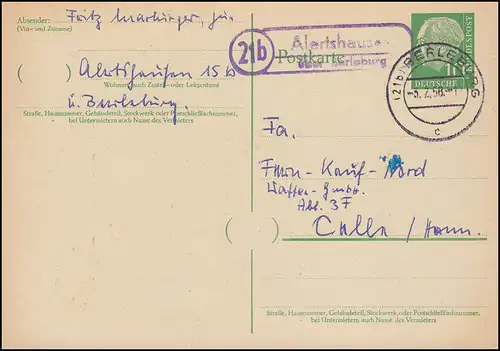 Absender: Fritz Marburger, jun
(Vor- und Zuname)
Alertshausen 15b
Wohnort, auch Zustell- oder Leitpostamt
ü. Berleburg
Straße, Hausnummer, Gebäudeteil, Stockwerk oder Postschließfachnummer,
bei Untermietern auch Name des Vermieters
21b
Alertshausen
über Berleburg
Postkarte
DEUTSCHE
BUNDESPOST
(21b) BERLEBURG
-5.7.56.-
c
Fa.
Kauf-Nord
Waffen-Gmbh.
Abt. 3F
Celle / Hann.
Straße, Hausnummer, Gebäudeteil, Stockwerk oder Postschließfachnummer,
bei Untermietern auch Name des Vermieters